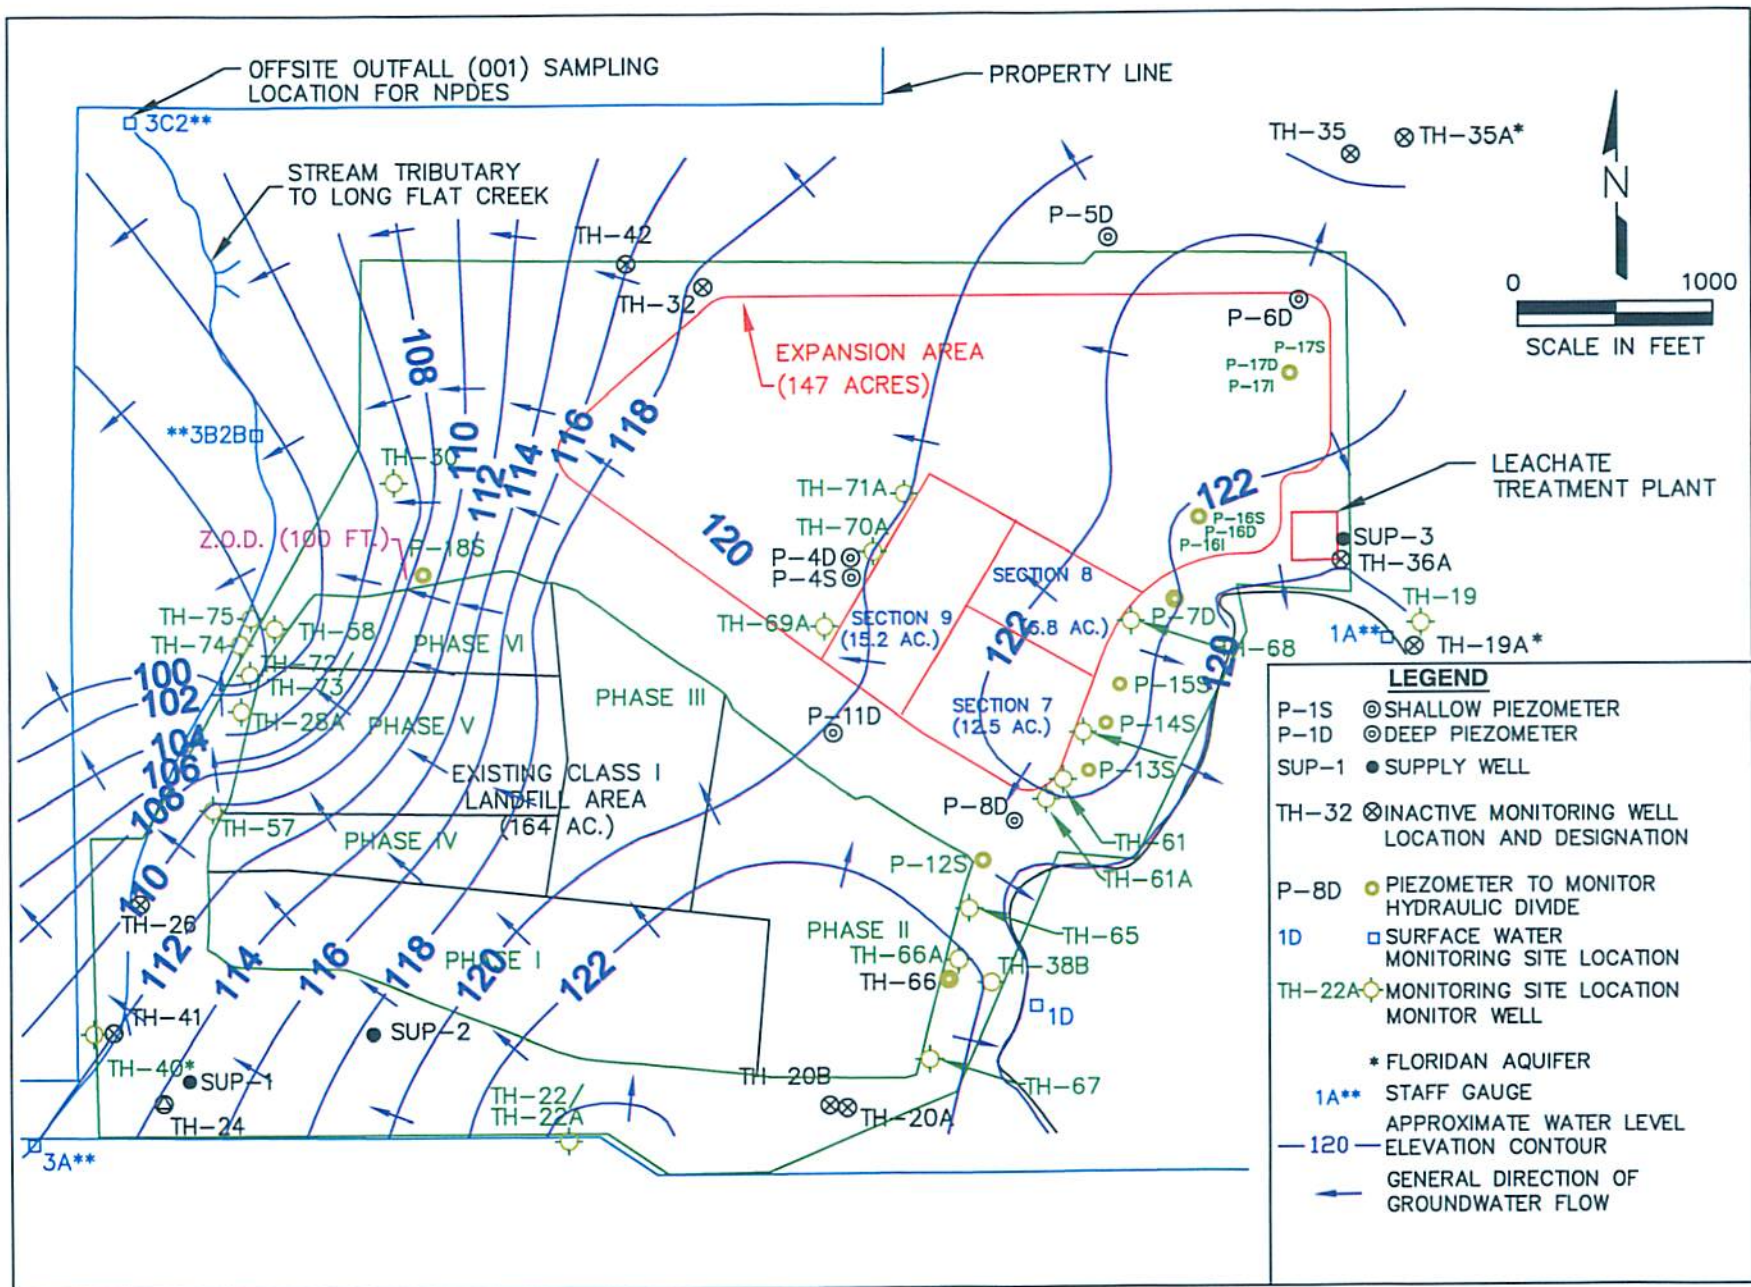 OFFSITE OUTFALL (001) SAMPLING
LOCATION FOR NPDES
PROPERTY LINE
3C2**
STREAM TRIBUTARY
TO LONG FLAT CREEK
TH-35
TH-35A*
N
0 1000
SCALE IN FEET
P-5D
TH-42
TH-32
P-6D
P-17S
P-17D
P-17I
EXPANSION AREA
(147 ACRES)
108
110
112
114
116
118
120
122
**3B2B
TH-30
LEACHATE
TREATMENT PLANT
TH-71A
TH-70A
P-4D
P-4S
P-16S
P-16D
P-16I
SUP-3
TH-36A
Z.O.D. (100 FT.)
P-18S
SECTION 8
(6.8 AC.)
SECTION 9
(15.2 AC.)
SECTION 7
(12.5 AC.)
122
120
TH-69A
P-7D
TH-68
TH-19
1A**
TH-19A*
TH-75
TH-74
TH-58
TH-72/
TH-73
TH-28A
PHASE VI
PHASE III
PHASE V
100
102
104
106
108
110
112
114
116
118
120
122
P-11D
P-15S
P-14S
P-13S
EXISTING CLASS I
LANDFILL AREA
(164 AC.)
P-8D
TH-57
PHASE IV
TH-61
TH-61A
P-12S
TH-26
PHASE II
TH-65
TH-66A
TH-66
TH-38B
PHASE I
1D
TH-41
SUP-2
TH-40*
SUP-1
TH-24
TH-22/
TH-22A
TH-20B
TH-20A
TH-67
3A**
LEGEND
P-1S SHALLOW PIEZOMETER
P-1D DEEP PIEZOMETER
SUP-1 SUPPLY WELL
TH-32 INACTIVE MONITORING WELL
LOCATION AND DESIGNATION
P-8D PIEZOMETER TO MONITOR
HYDRAULIC DIVIDE
1D SURFACE WATER
MONITORING SITE LOCATION
TH-22A MONITORING SITE LOCATION
MONITOR WELL
* FLORIDAN AQUIFER
1A** STAFF GAUGE
APPROXIMATE WATER LEVEL
120 ELEVATION CONTOUR
GENERAL DIRECTION OF
GROUNDWATER FLOW